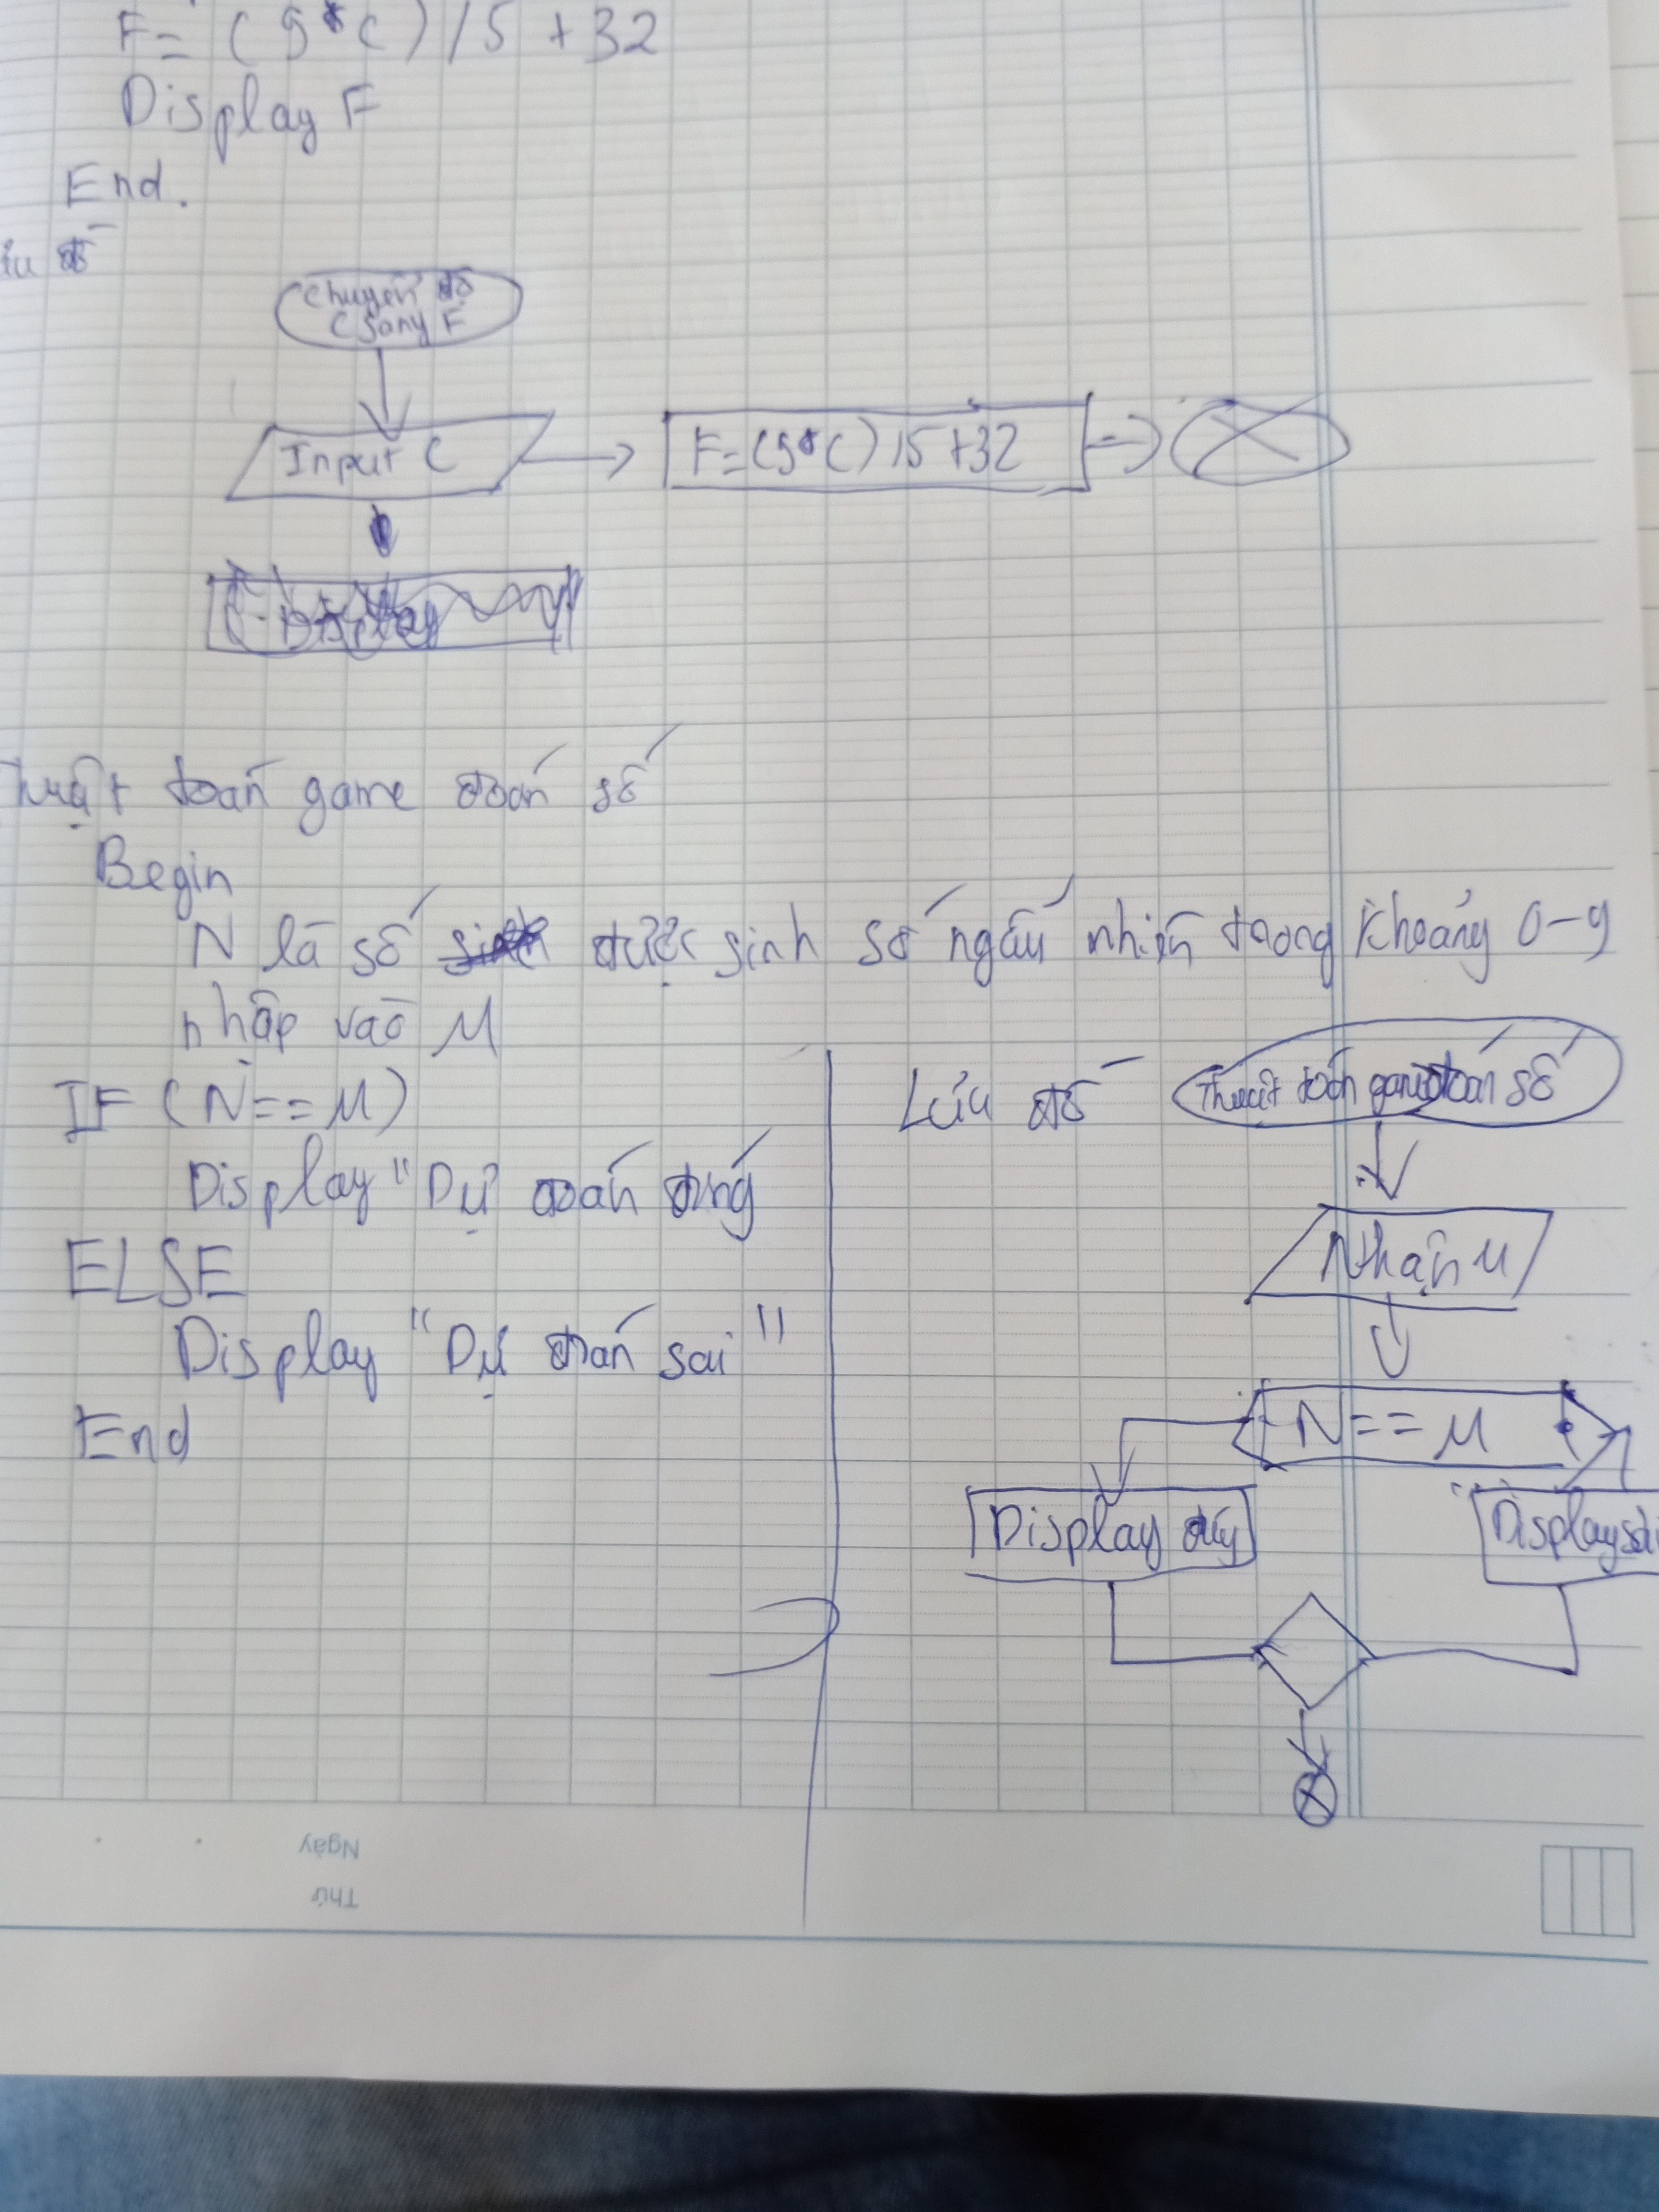 F= (9*C)/5 +32
Display F
End.
đồ
Chuyển độ
C sang F
Input C
F=(9*C)/5+32
Display
Thuật toán game đoán số
Begin
N là số được sinh số ngẫu nhiên trong khoảng 0-9
nhập vào M
IF (N==M)
Display "Dự đoán đúng
ELSE
Display "Dự đoán sai"
End
Lưu đồ
Thuật toán game đoán số
Nhận M
N==M
Display đúng
Display sai
Ngày
Thứ